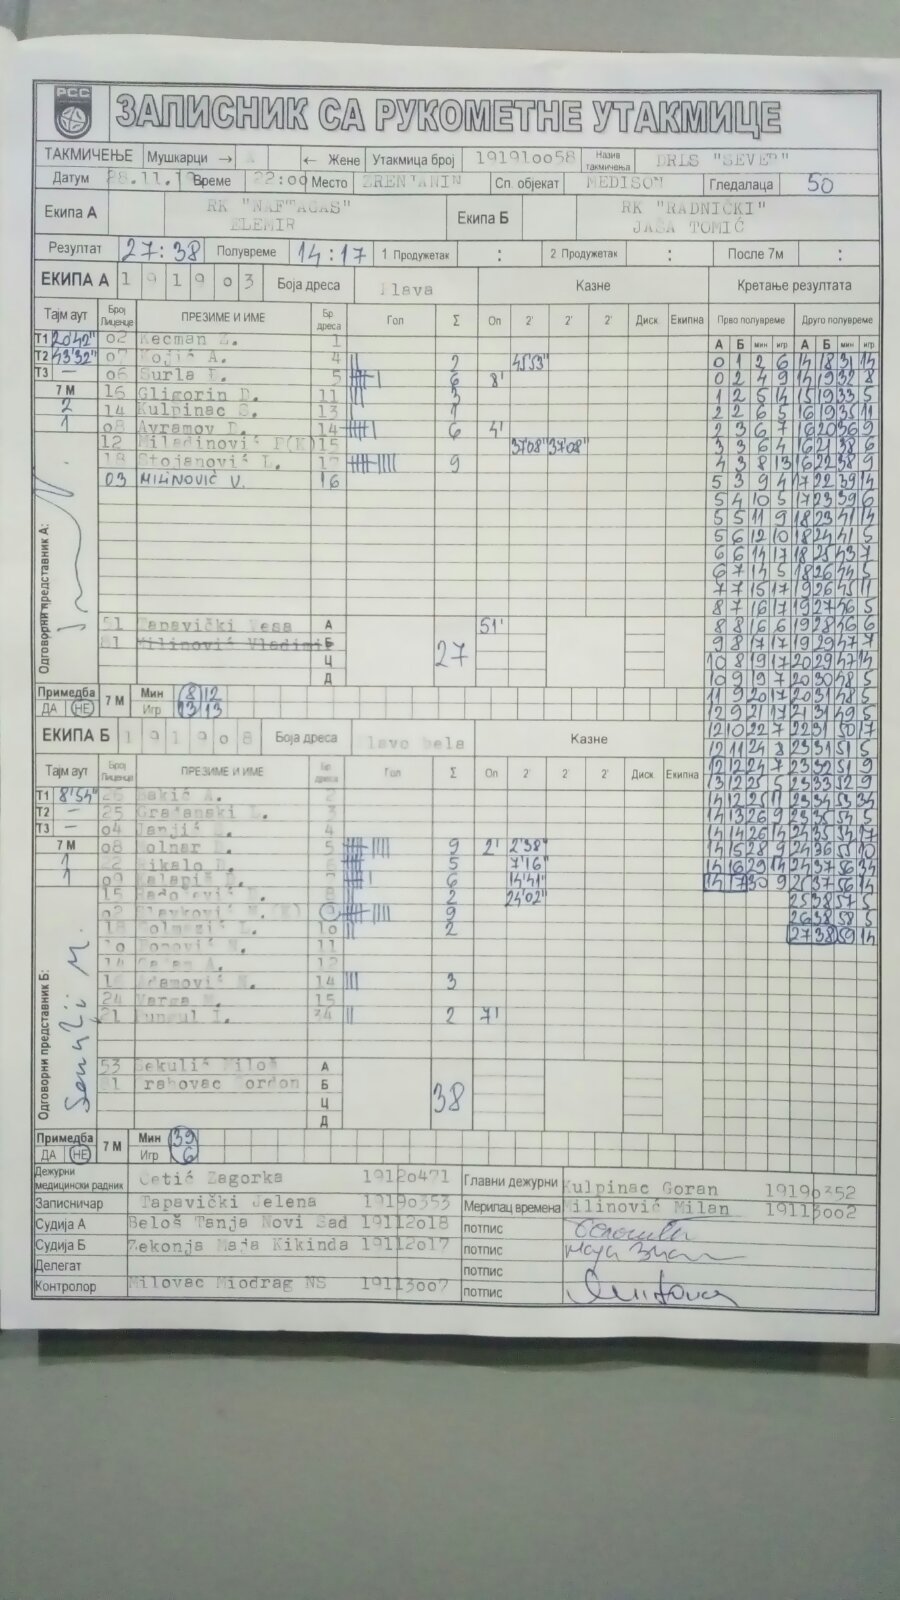 РСС
ЗАПИСНИК СА РУКОМЕТНЕ УТАКМИЦЕ
ТАКМИЧЕЊЕ Мушкарци → ← Жене Утакмица број 19191oo58 Назив такмичења DRLS "SEVER"
Датум 28.11.19 Време 22:00 Место ZRENJANIN Сп. објекат MEDISON Гледалаца 50
Екипа А RK "NAFTAGAS" ELEMIR Екипа Б RK "RADNIČKI" JAŠA TOMIĆ
Резултат 27:38 Полувреме 14:17 1 Продужетак : 2 Продужетак : После 7м :
ЕКИПА А 1 9 1 9 0 3 Боја дреса Plava Казне Кретање резултата
Тајм аут Број Лиценце ПРЕЗИМЕ И ИМЕ Бр дреса Гол Σ Оп 2' 2' 2' Диск Екипна Прво полувреме Друго полувреме
А Б мин игр А Б мин игр
Т1 20'42" o2 Kecman Z. 1
Т2 43'32" o7 Kojić A. 4 2 45'53" 0 1 2 6 14 18 31 14
Т3 — o6 Surla 5 6 8' 0 2 4 9 14 19 32 8
7 М 16 Gligorin D. 11 3 1 2 5 14 15 19 33 5
2 14 Kulpinac S. 13 1 2 2 6 5 16 19 35 11
1 o8 Avramov D. 14 6 4' 2 3 6 7 16 20 36 9
12 Miladinović P(K) 15 37'08" 37'08" 3 3 6 4 16 21 38 6
19 Stojanović L. 17 9 4 3 8 13 16 22 38 9
03 MILINOVIĆ V. 16 5 3 9 4 17 22 39 14
5 4 10 5 17 23 39 6
5 5 11 9 18 23 41 14
5 6 12 10 18 24 41 5
6 6 14 17 18 25 43 7
6 7 14 5 18 26 44 5
7 7 15 17 19 26 45 11
8 7 16 17 19 27 46 5
Одговорни представник А:
51 Tapavički Vesa А 51' 8 8 16 6 19 28 46 6
81 Milinović Vladimir Б 27 9 8 17 17 19 29 47 7
Ц 10 8 19 17 20 29 47 14
Д 10 9 19 7 20 30 48 5
Примедба ДА НЕ 7 М Мин 8 12 11 9 20 17 20 31 48 5
Игр 13 13 12 9 21 17 21 31 49 5
ЕКИПА Б 1 9 1 9 0 8 Боја дреса plavo bela Казне 12 10 22 7 22 31 50 17
12 11 24 8 23 31 51 5
Тајм аут Број Лиценце ПРЕЗИМЕ И ИМЕ Бр дреса Гол Σ Оп 2' 2' 2' Диск Екипна 12 12 24 7 23 32 51 9
13 12 25 5 23 33 52 9
Т1 8'54" 26 Bakić A. 2 14 12 25 11 23 34 53 34
Т2 — 25 Građanski 3 14 13 26 9 23 35 54 5
Т3 — o4 Janjić 4 14 14 26 14 24 35 54 17
7 М o8 Molnar 5 9 2' 2'38" 14 15 28 9 24 36 55 10
1 22 Mikalo D. 5 7'16" 14 16 29 14 24 37 56 34
1 o9 Kalapiš 7 6 14'41" 14 17 30 9 25 37 56 14
15 Radočević 8 2 24'02" 25 38 57 5
o2 Slavković (K) 9 9 26 38 58 5
18 L. 1o 2 27 38 59 14
1o Popović N. 11
14 A. 12
Adamović N. 14 3
24 Varga 15
21 I. 34 2 7'
Одговорни представник Б:
53 Sekulić Miloš А
81 Grahovac Gordon Б 38
Ц
Д
Примедба ДА НЕ 7 М Мин 39
Игр 6
Дежурни медицински радник Cetić Zagorka 1912o471 Главни дежурни Kulpinac Goran 1919o352
Записничар Tapavički Jelena 1919o353 Мерилац времена Milinović Milan 19113oo2
Судија А Beloš Tanja Novi Sad 19112o18 потпис
Судија Б Zekonja Maja Kikinda 19112o17 потпис
Делегат потпис
Контролор Milovac Miodrag NS 19113oo7 потпис